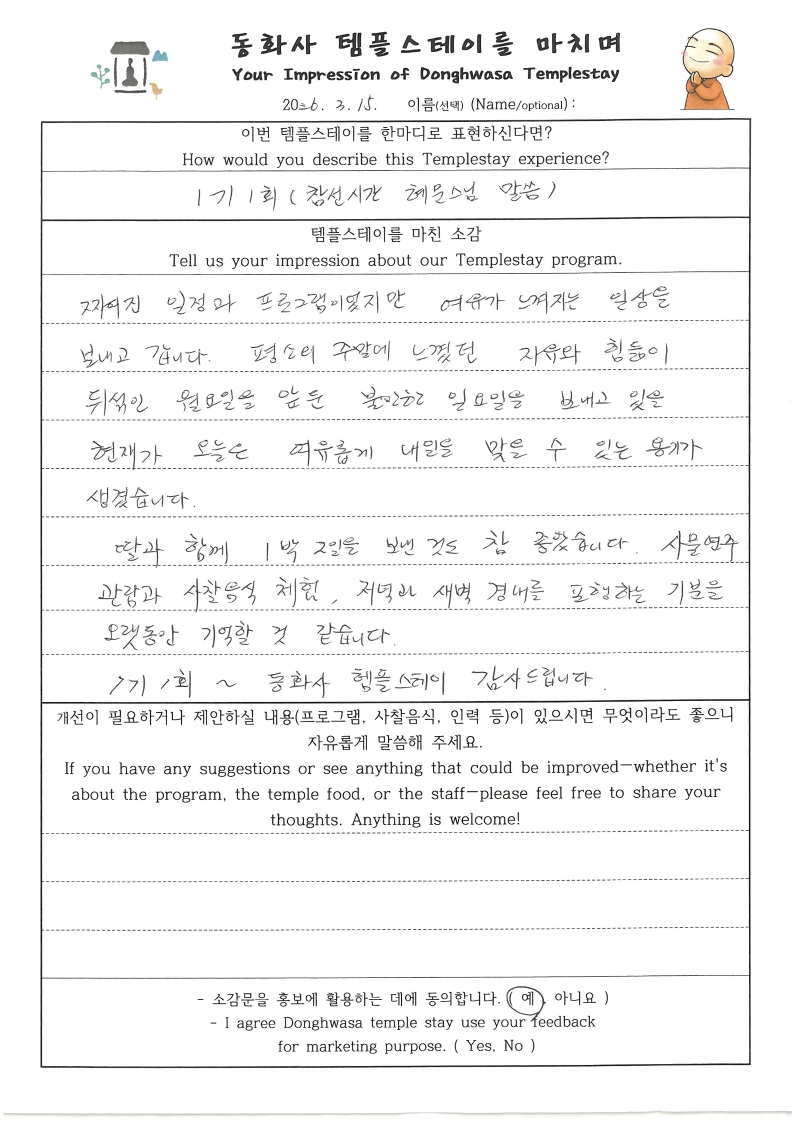 동화사 템플스테이를 마치며
Your Impression of Donghwasa Templestay
2026. 3. 15. 이름(선택) (Name/optional) :
이번 템플스테이를 한마디로 표현하신다면?
How would you describe this Templestay experience?
1기 1회 ( 참선시간 혜문스님 말씀 )
템플스테이를 마친 소감
Tell us your impression about our Templestay program.
짜여진 일정과 프로그램이었지만 여유가 느껴지는 일상을
보내고 갑니다. 평소의 주말에 느꼈던 자유와 힘듦이
뒤섞인 월요일을 앞둔 불안한 일요일을 보내고 있을
현재가 오늘은 여유롭게 내일을 맞을 수 있는 용기가
생겼습니다.
딸과 함께 1박 2일을 보낸 것도 참 좋았습니다. 사물연주
관람과 사찰음식 체험, 저녁과 새벽 경내를 포행하는 기분을
오랫동안 기억할 것 같습니다.
1기 1회 ~ 동화사 템플스테이 감사드립니다.
개선이 필요하거나 제안하실 내용(프로그램, 사찰음식, 인력 등)이 있으시면 무엇이라도 좋으니
자유롭게 말씀해 주세요.
If you have any suggestions or see anything that could be improved—whether it's
about the program, the temple food, or the staff—please feel free to share your
thoughts. Anything is welcome!
- 소감문을 홍보에 활용하는 데에 동의합니다. ( 예, 아니요 )
- I agree Donghwasa temple stay use your feedback
for marketing purpose. ( Yes, No )